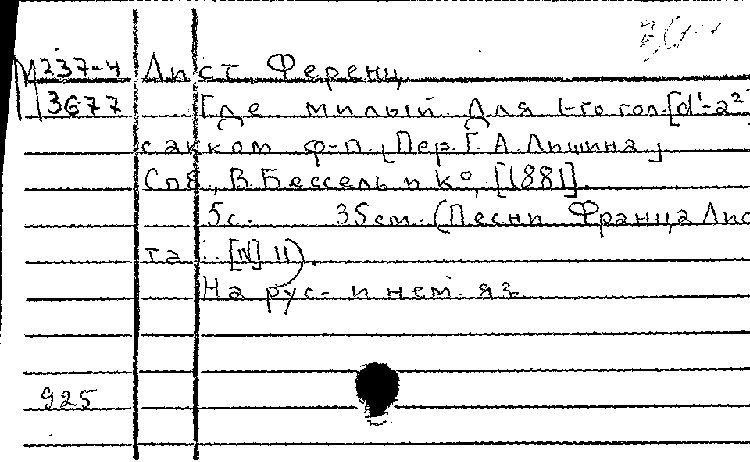 М 237-4 Лист Ференц
3677 Где милый Для 1-го гол. [d¹-a²]
с акком ф-п. Пер. Г. А. Лишина.
Спб., В. Бессель и К°, [1881].
5с. 35см. (Песни Франца Лис
та [N] 11).
На рус. и нем. яз.
925